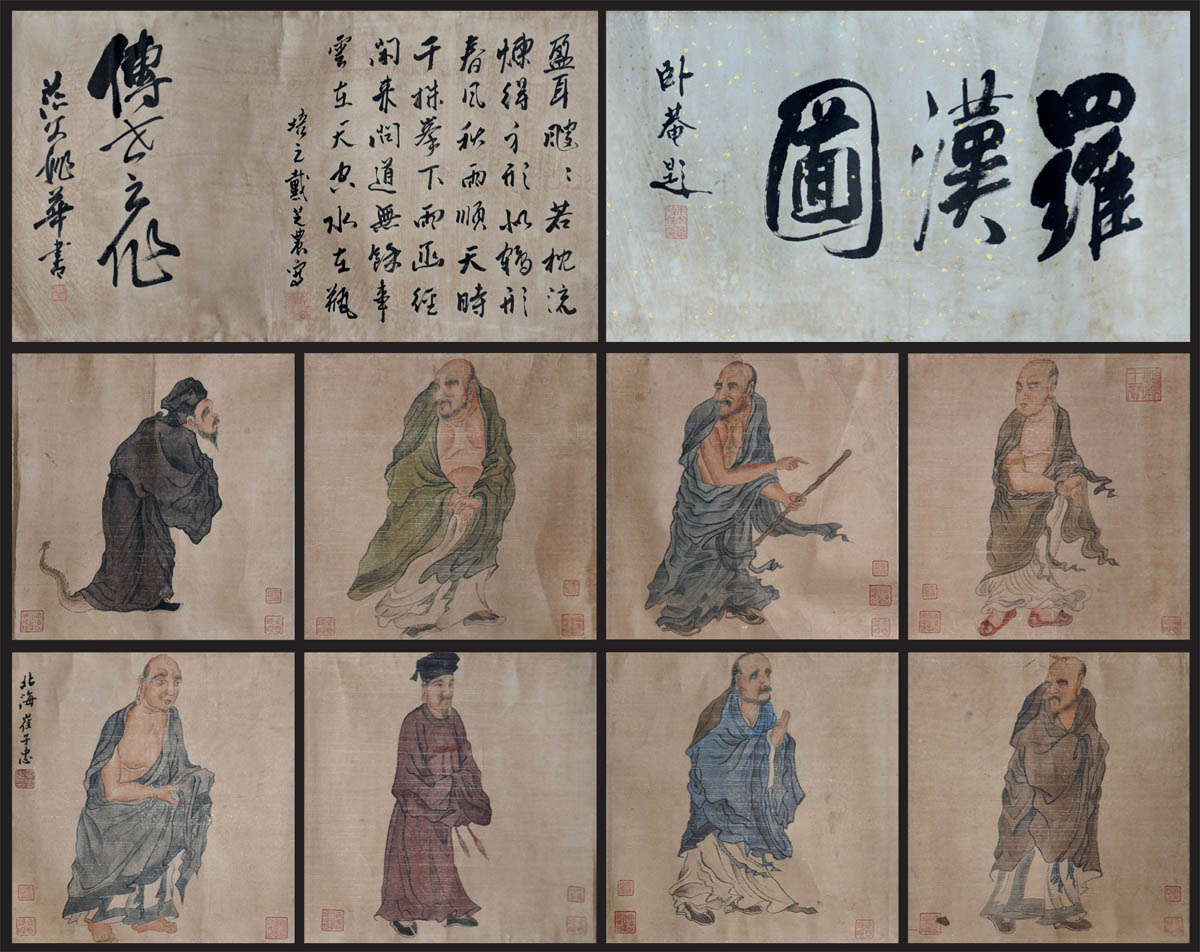 羅漢圖
卧菴題
盈耳颼〻若枕流
煉得身形似鶴形
春風秋雨順天時
千株松下兩函經
閑來問道無餘事
雲在天空水在瓶
培之戴芝農寫
傳世之作
茫父姚華書
北海崔子忠